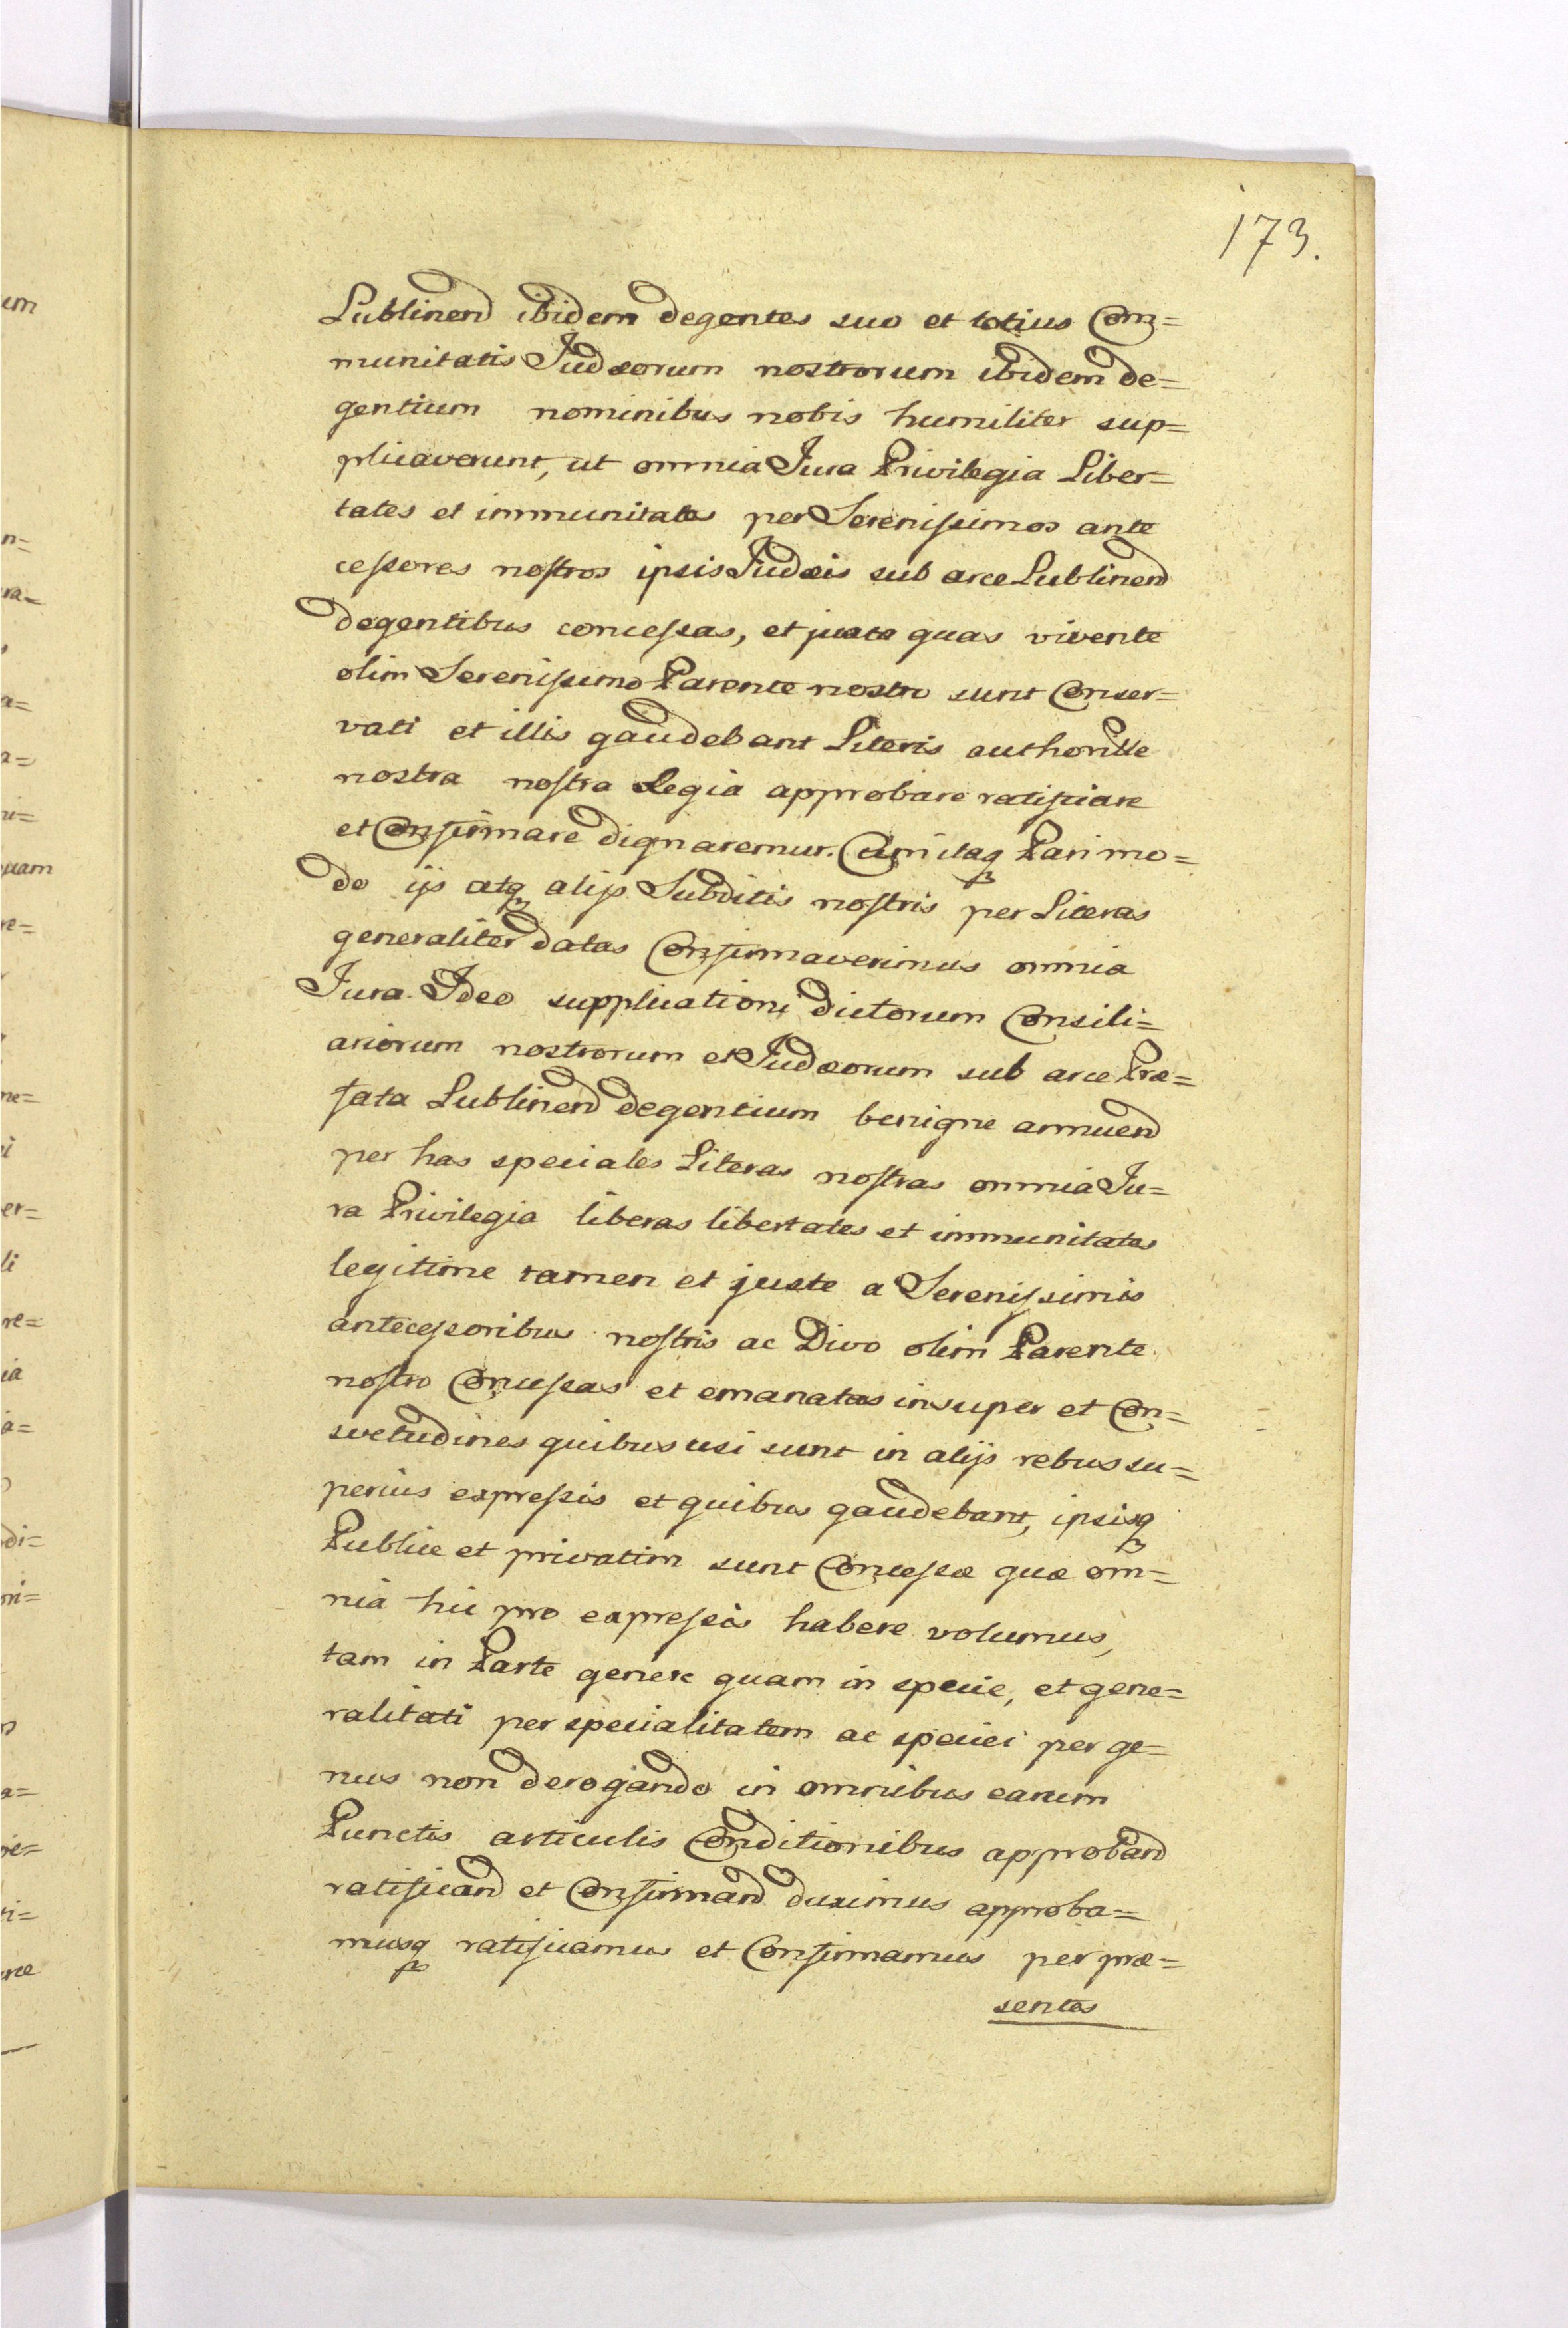 173.
Lublinend ibidem degentes suo et totius Com=
munitatis Judæorum nostrorum ibidem de=
gentium nominibus nobis humiliter sup=
plicaverunt, ut omnia Jura Privilegia Liber=
tates et immunitates per Serenissimos ante
cessores nostros ipsis Judæis sub arce Lublinend
degentibus concessas, et juxta quas vivente
olim Serenissimo Parente nostro sunt Conser=
vati et illis gaudebant Literis authoritte
nostra nostra Regia approbare ratificare
et Confirmare dignaremur. Cum itaq Pari mo=
do ijs atq alijs Subditis nostris per Literas
generaliter datas Confirmaverimus omnia
Jura. Ideo supplicationi dictorum Consili=
ariorum nostrorum et Judæorum sub arce Præ=
fata Lublinend degentium benigne annuend
per has speciales Literas nostras omnia Ju=
ra Privilegia liberas libertates et immunitates
legitime tamen et juste a Serenissimis
antecessoribus nostris ac Divo olim Parente
nostro Concessas et emanatas insuper et Con=
svetudines quibus usi sunt in alijs rebus su=
perius expressis et quibus gaudebant, ipsisq
Publice et privatim sunt Concessæ quæ om=
nia hic pro expressis habere volumus,
tam in Parte genere quam in specie, et gene=
ralitati per specialitatem ac speciei per ge=
nus non derogando in omnibus earum
Punctis articulis Conditionibus approband
ratificand et Confirmand duximus approba=
musq ratificamus et Confirmamus per præ=
sentes